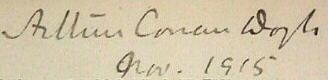 Arthur Conan Doyle
Nov. 1915